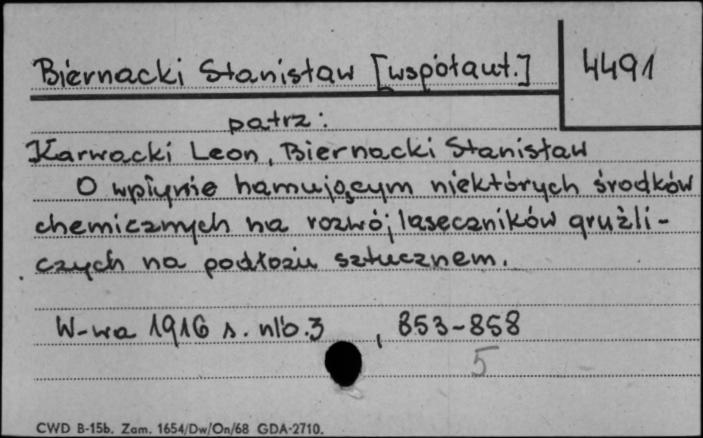 Biernacki Stanisław [współaut.]
4491
patrz:
Karwacki Leon, Biernacki Stanisław
O wpływie hamującym niektórych środków
chemicznych na rozwój laseczników gruźli-
czych na podłożu sztucznem.
W-wa 1916 s. nlb. 3, 853-858
5
CWD B-15b. Zam. 1654/Dw/On/68 GDA-2710.